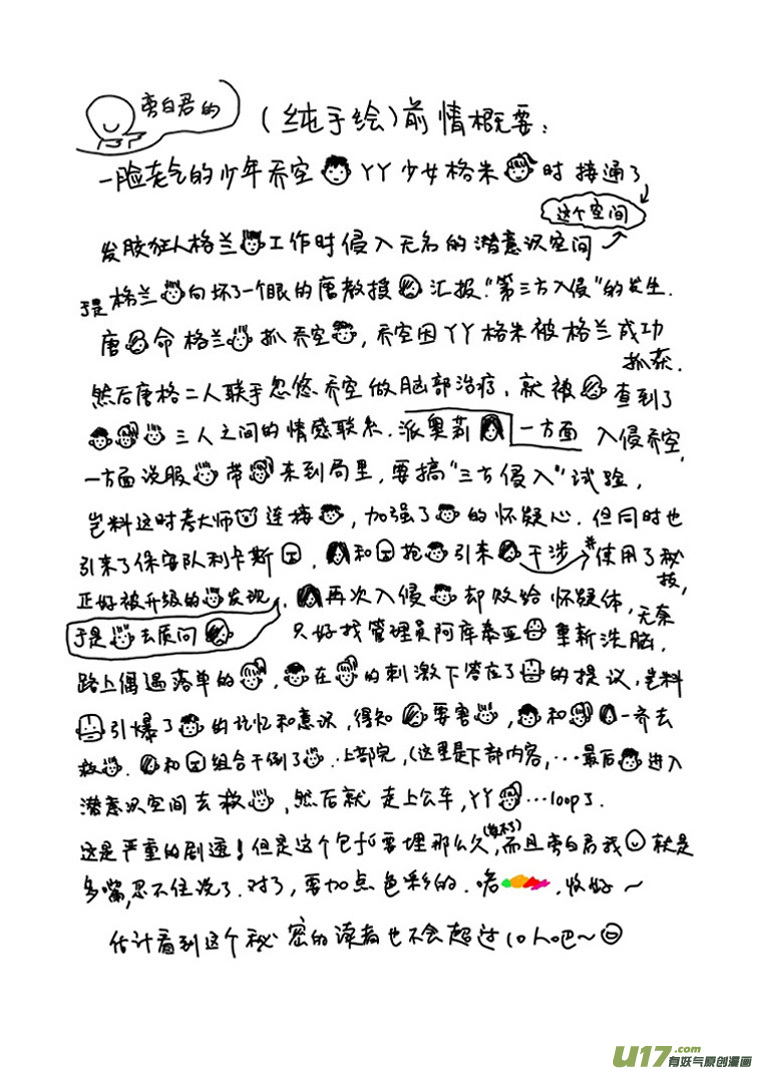 旁白君的
(纯手绘)前情概要:
一脸老气的少年乔空 YY少女格朱 时接通了
这个空间
发胶狂人格兰 工作时侵入无名的潜意识空间
于是格兰 向坏了一个眼的唐教授 汇报."第三方入侵"的发生.
唐 命格兰 抓乔空 ,乔空因YY格朱被格兰成功
抓获.
然后唐格二人联手忽悠乔空做脑部治疗,就被 查到了
三人之间的情感联系.派奥莉 一方面 入侵乔空,
一方面说服 带 来到局里,要搞"三方侵入"试验,
岂料这时考大师 连接 ,加强了 的怀疑心.但同时也
引来了保客队利卡斯 . 和 抱 引来 干涉 *使用了秘
技,
正好被升级的 发现, 再次入侵 却败给怀疑体,无奈
于是 去质问 只好找管理员阿库泰亚 重新洗脑.
路上偶遇落单的 , 在 的刺激下答应了 的提议.岂料
引爆了 的记忆和意识,得知 要害 , 和 一齐去
救 . 和 组合干倒了 ..上部完,(这里是下部内容,...最后 进入
潜意识空间去救 ,然后就 走上公车,YY ...loop了.
这是严重的剧透!但是这个包子要埋那么久,而且旁白君我 就是
多嘴,忍不住说了.对了,要加点色彩的.喏 .收好~
估计看到这个秘密的读者也不会超过10人吧~
U17.com
有妖气原创漫画